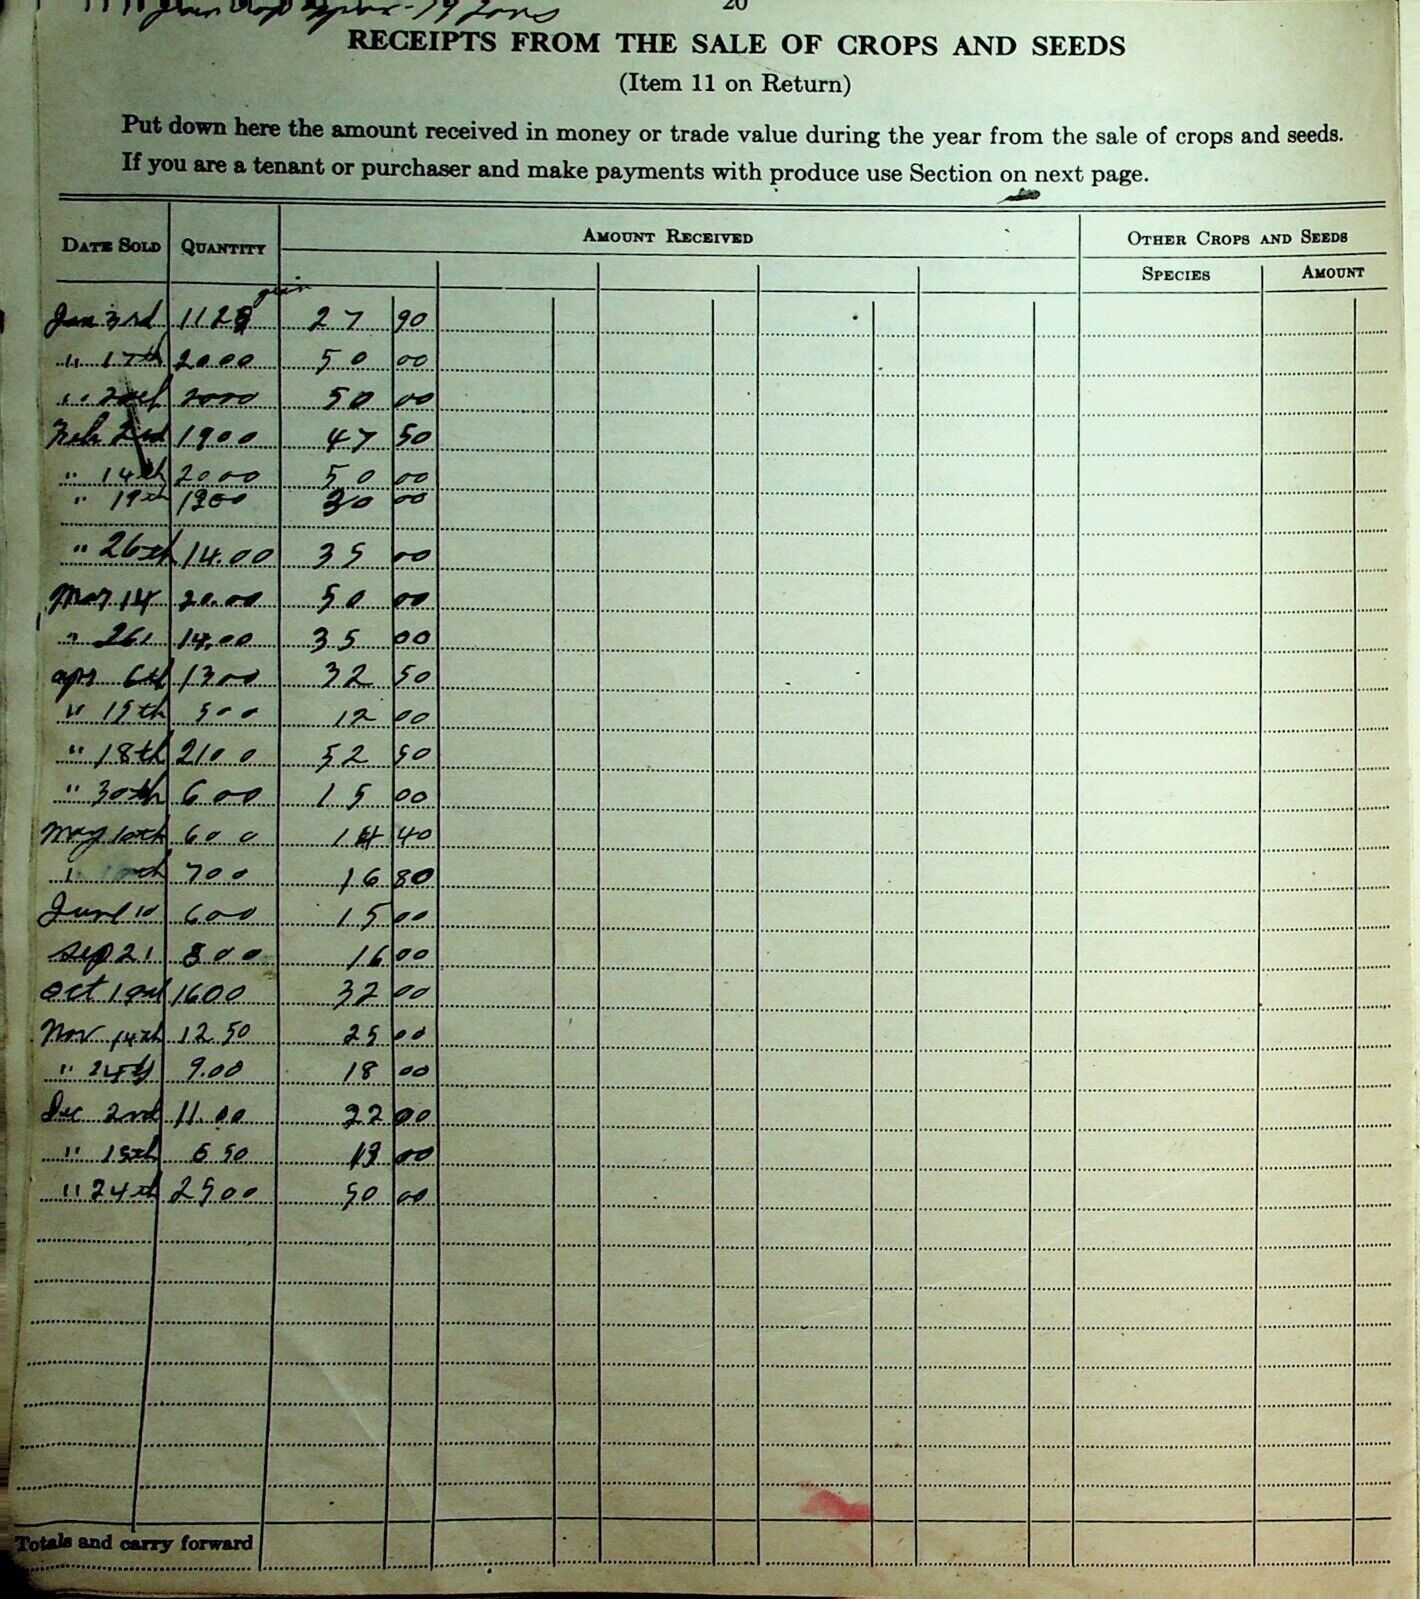 20
RECEIPTS FROM THE SALE OF CROPS AND SEEDS
(Item 11 on Return)
Put down here the amount received in money or trade value during the year from the sale of crops and seeds.
If you are a tenant or purchaser and make payments with produce use Section on next page.
DATE SOLD QUANTITY AMOUNT RECEIVED OTHER CROPS AND SEEDS
SPECIES AMOUNT
Jan 3rd 27 90
" 17th 2000 50 00
" 2000 50 00
Feb 2nd 1900 47 50
" 14th 2000 50 00
" 19th 00
" 26th 14.00 35 00
Mar 14 20.00 50 00
" 26 14.00 35 00
apr 6th 1300 32 50
" 15th 500 12 00
" 18th 2100 52 50
" 30th 600 15 00
May 10th 600 14 40
" 700 16 80
June 10 600 15 00
Sep 21 800 16 00
Oct 1600 32 00
Nov 14th 12.50 25 00
" 24th 9.00 18 00
Dec 2nd 11.00 22 00
" 15th 6 50 13 00
" 24th 2500 50 00
Totals and carry forward